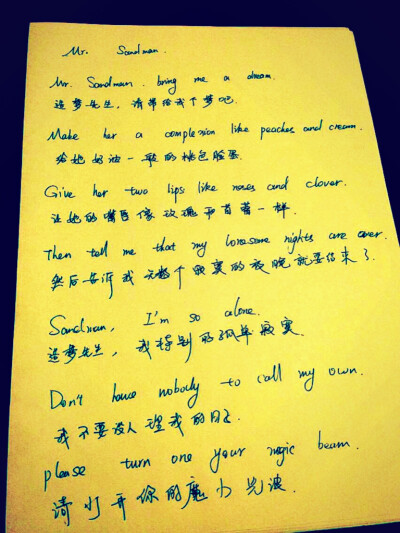 Mr. Sandman.
Mr. Sandman. bring me a dream.
造梦先生，请带给我个梦吧.
Make her a complexion like peaches and cream.
给她奶油一般的桃色脸蛋.
Give her two lips like roses and clover.
让她的嘴唇像玫瑰和苜蓿一样.
Then tell me that my lonesome nights are over.
然后告诉我 个寂寞的夜晚就要结束了.
Sandman, I'm so alone.
造梦先生，我特别的孤单寂寞.
Don't have nobody to call my own.
我不要没人理我的日子.
please turn one your magic beam.
请打开你的魔力光波.